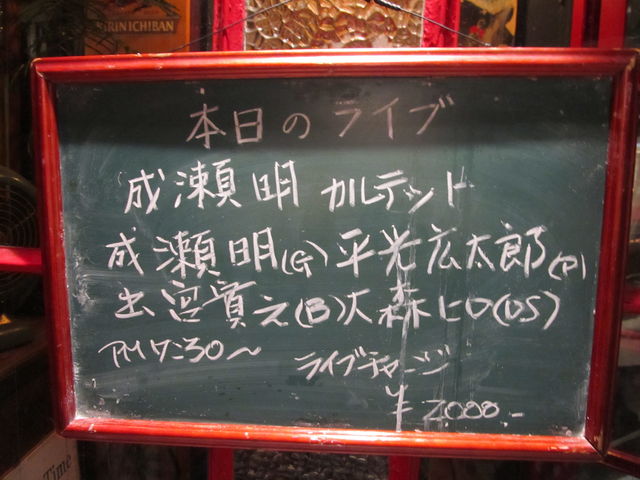 KIRIN ICHIBAN
本日のライブ
成瀬明 カルテット
成瀬明(G)平光広太郎(P)
出宮寛之(B)大森ヒロ(DS)
PM7:30〜 ライブチャージ
¥2000.-
Time